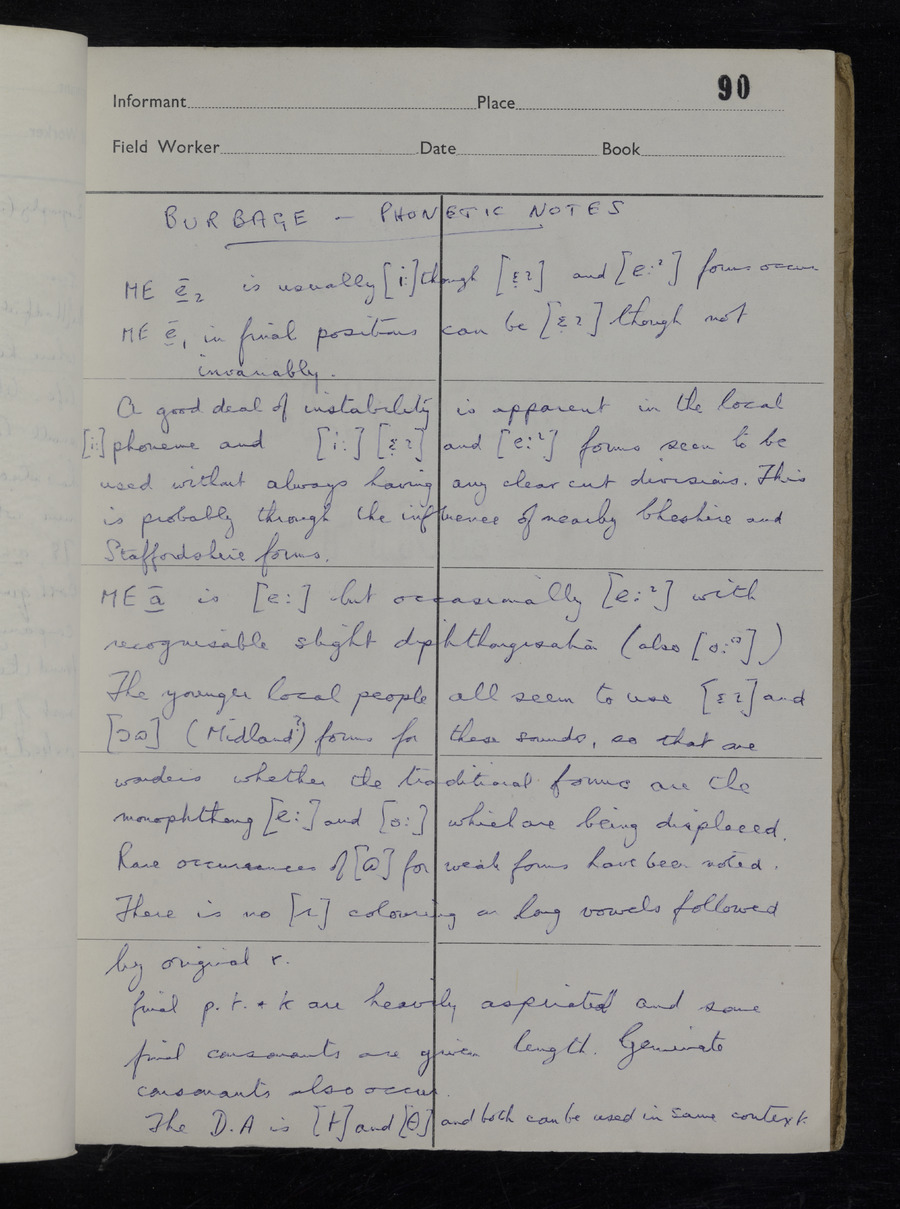 90
Informant Place
Field Worker Date Book
BURBAGE – PHONETIC NOTES
ME ē₂ is usually [i:] though [ɛ̣ɪ] and [e:ᶦ] forms occur
ME ē₁ in final positions can be [ɛ̣ɪ] though not
invariably.
A good deal of instability is apparent in the local
[i:] phoneme and [i:] [ɛ̣ɪ] and [e:ᶦ] forms seem to be
used without always having any clear cut divisions. This
is probably through the influence of nearby Cheshire and
Staffordshire forms.
ME ā is [e:] but occasionally [e:ᶦ] with
recognisable slight diphthongisation (also [o:ᶷ])
The younger local people all seem to use [ɛɪ] and
[ɔʊ] (Midland?) forms for these sounds, so that one
wonders whether the traditional forms are the
monophthong [e:] and [o:] which are being displaced.
Rare occurrences of [ə] for weak forms have been noted.
There is no [r] colouring on long vowels followed
by original r.
final p. t. + k are heavily aspirated and some
final consonants are given length. Geminate
consonants also occur.
The D.A is [t] and [θ] and both can be used in same context.